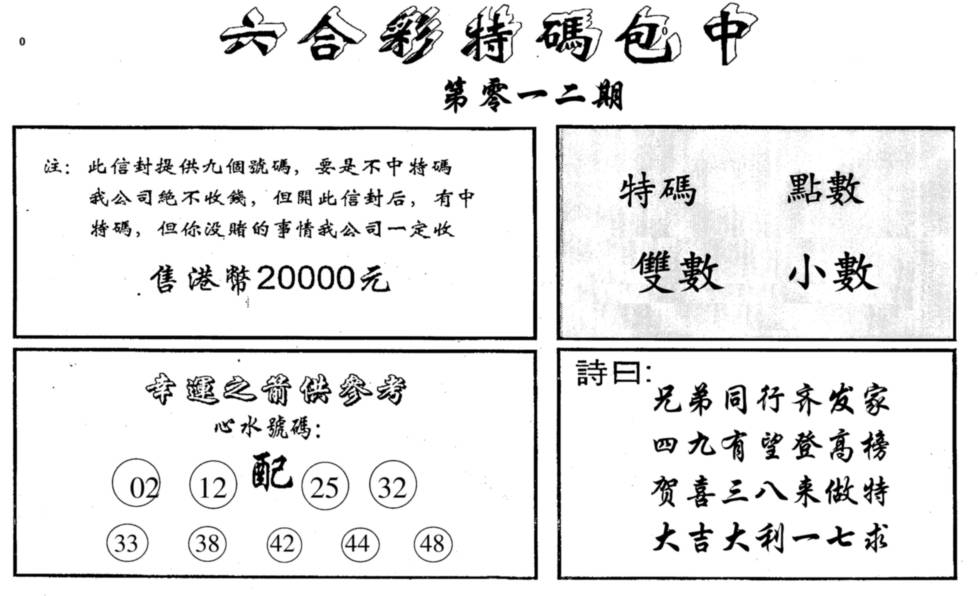 0
六合彩特碼包中
第零一二期
注：此信封提供九個號碼，要是不中特碼
我公司絕不收錢，但開此信封后，有中
特碼，但你没賭的事情我公司一定收
售港幣20000元
特碼 點數
雙數 小數
幸運之箭供參考
心水號碼：
配
02 12 25 32
33 38 42 44 48
詩曰:
兄弟同行齐发家
四九有望登高榜
贺喜三八来做特
大吉大利一七求